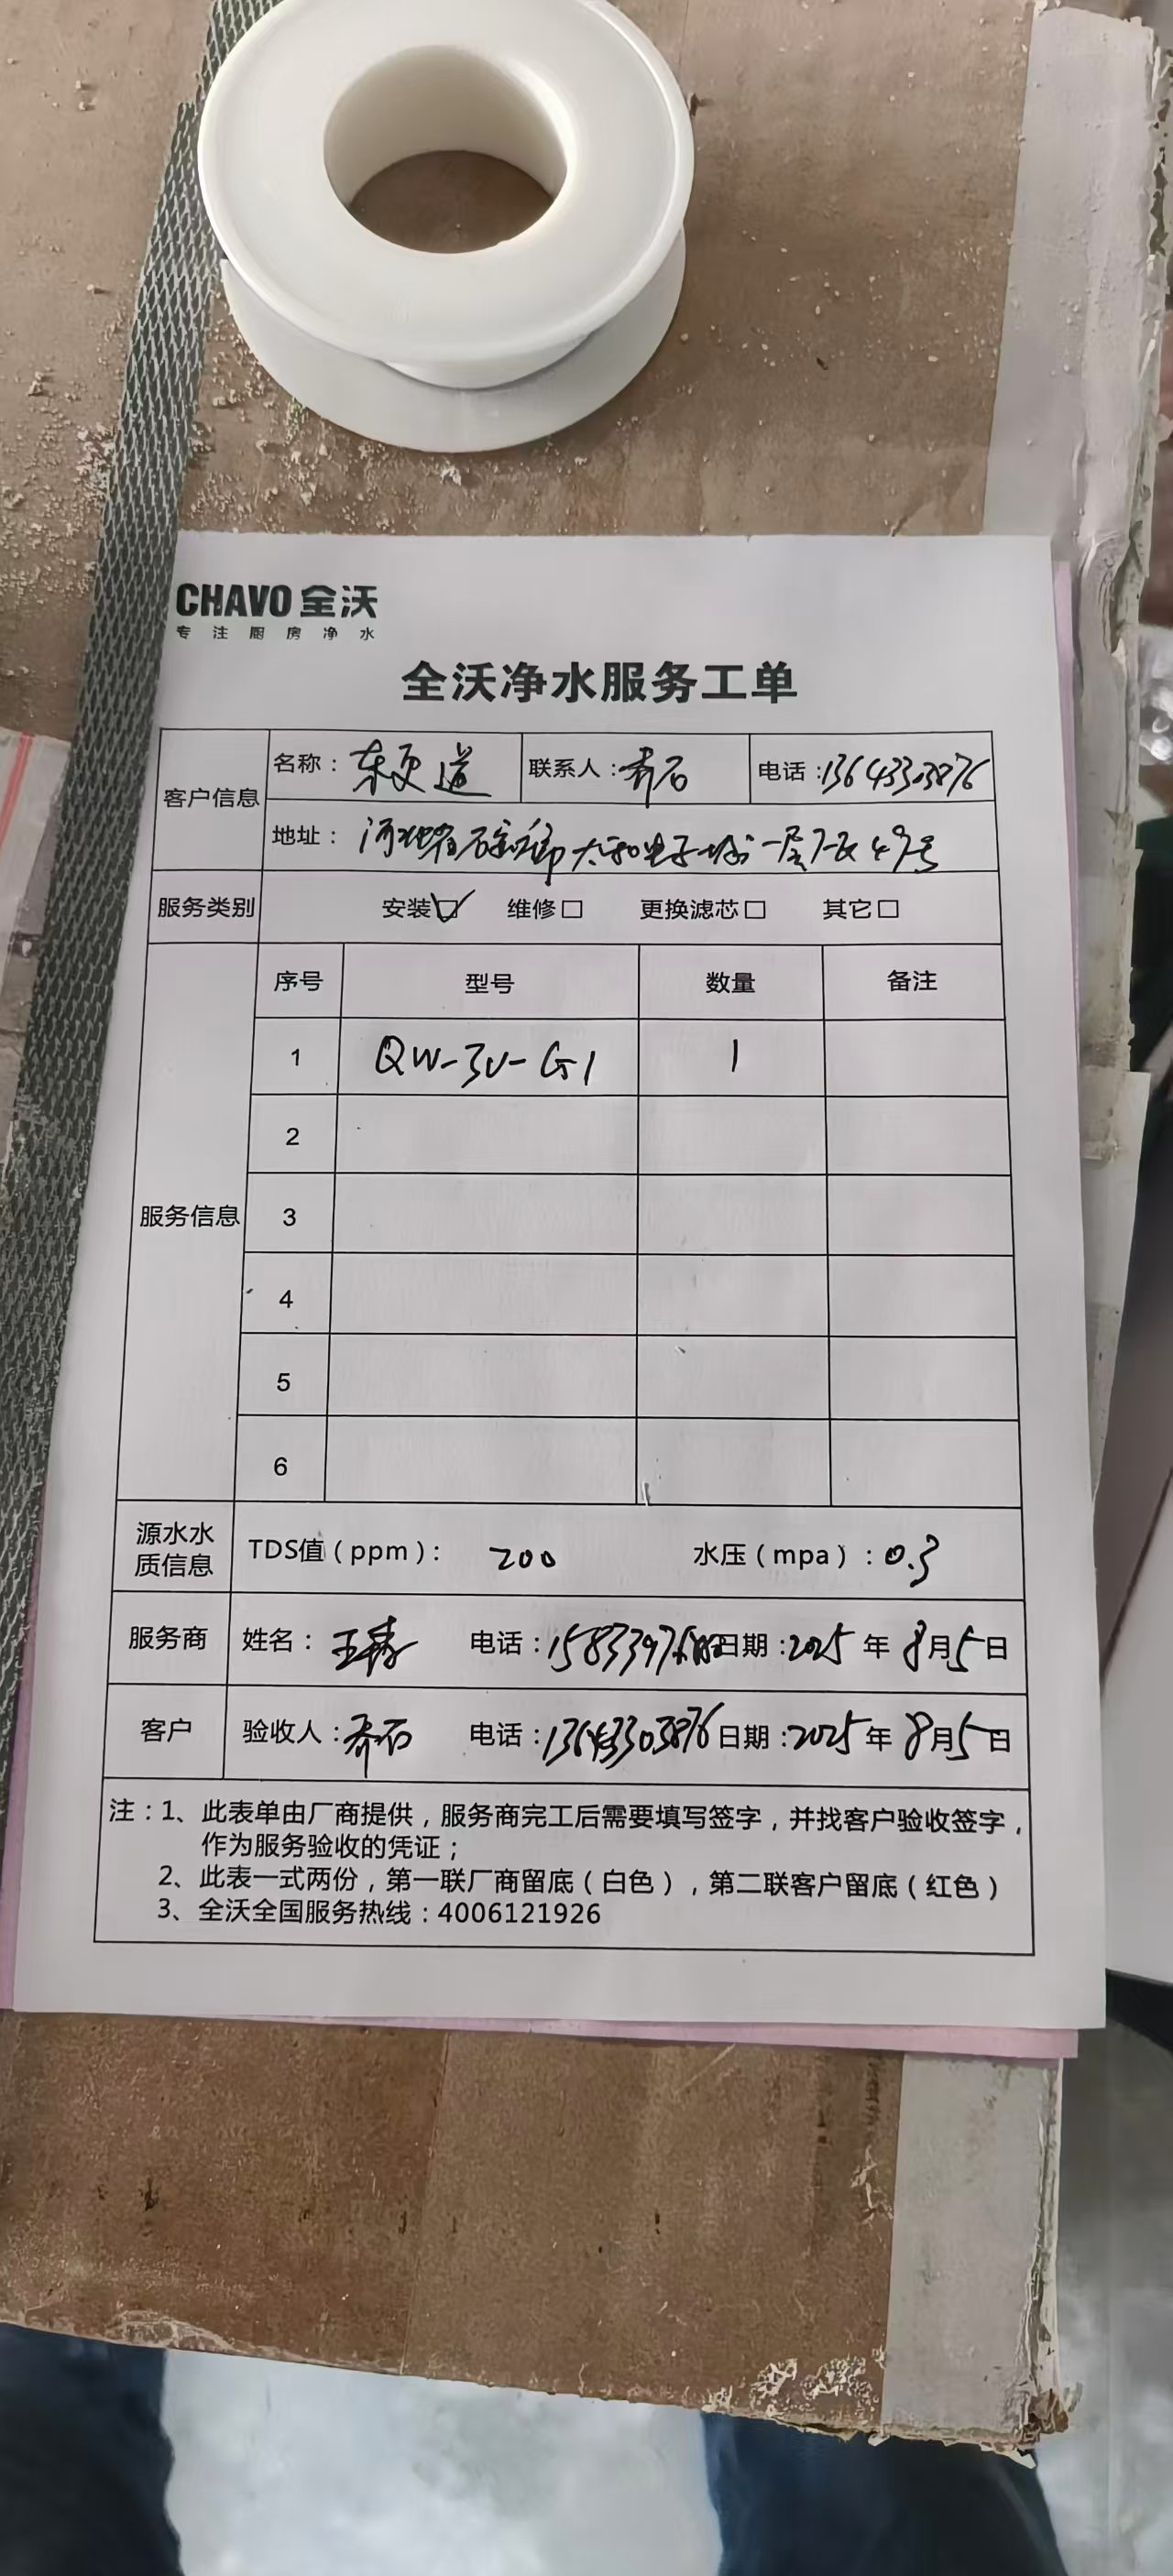 CHAVO 全沃
专注厨房净水
全沃净水服务工单
客户信息
名称：东更道 联系人：乔石 电话：13643303876
地址：河北省石家庄 太和电子城 一层 49号
服务类别 安装☑ 维修□ 更换滤芯□ 其它□
服务信息
序号 型号 数量 备注
1 QW-3U-G1 1
2
3
4
5
6
源水水质信息 TDS值（ppm）： 200 水压（mpa）：0.3
服务商 姓名：王 电话： 日期：2025年8月5日
客户 验收人：乔石 电话：13643303876 日期：2025年8月5日
注：1、此表单由厂商提供，服务商完工后需要填写签字，并找客户验收签字，
作为服务验收的凭证；
2、此表一式两份，第一联厂商留底（白色），第二联客户留底（红色）
3、全沃全国服务热线：4006121926